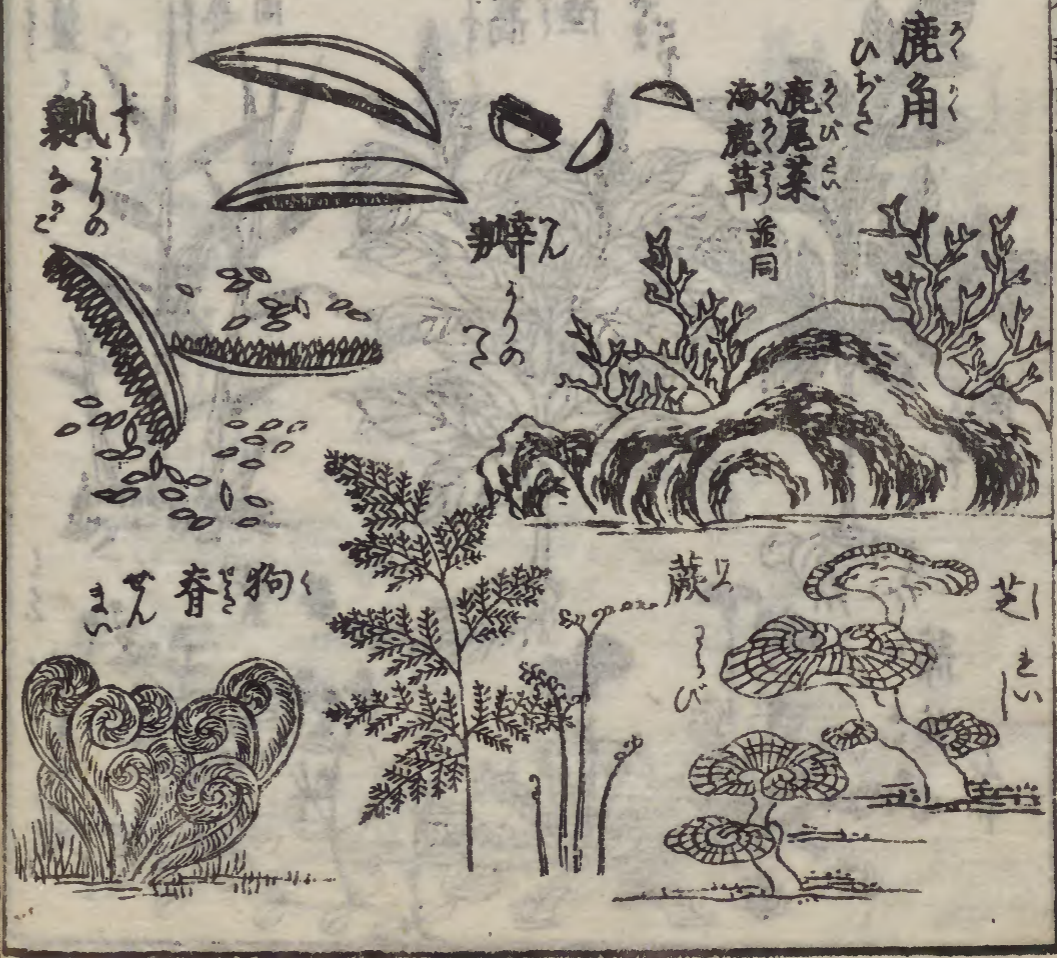 鹿角 ろくかく
ひぢき
鹿尾菜 ろくびさい
海鹿草 かいろくさう
並同
瓣 へん
うりの
瓤
うりの
なかご
芝 し
れいし
蕨
わらび
狗脊 くせき
ぜん
まい